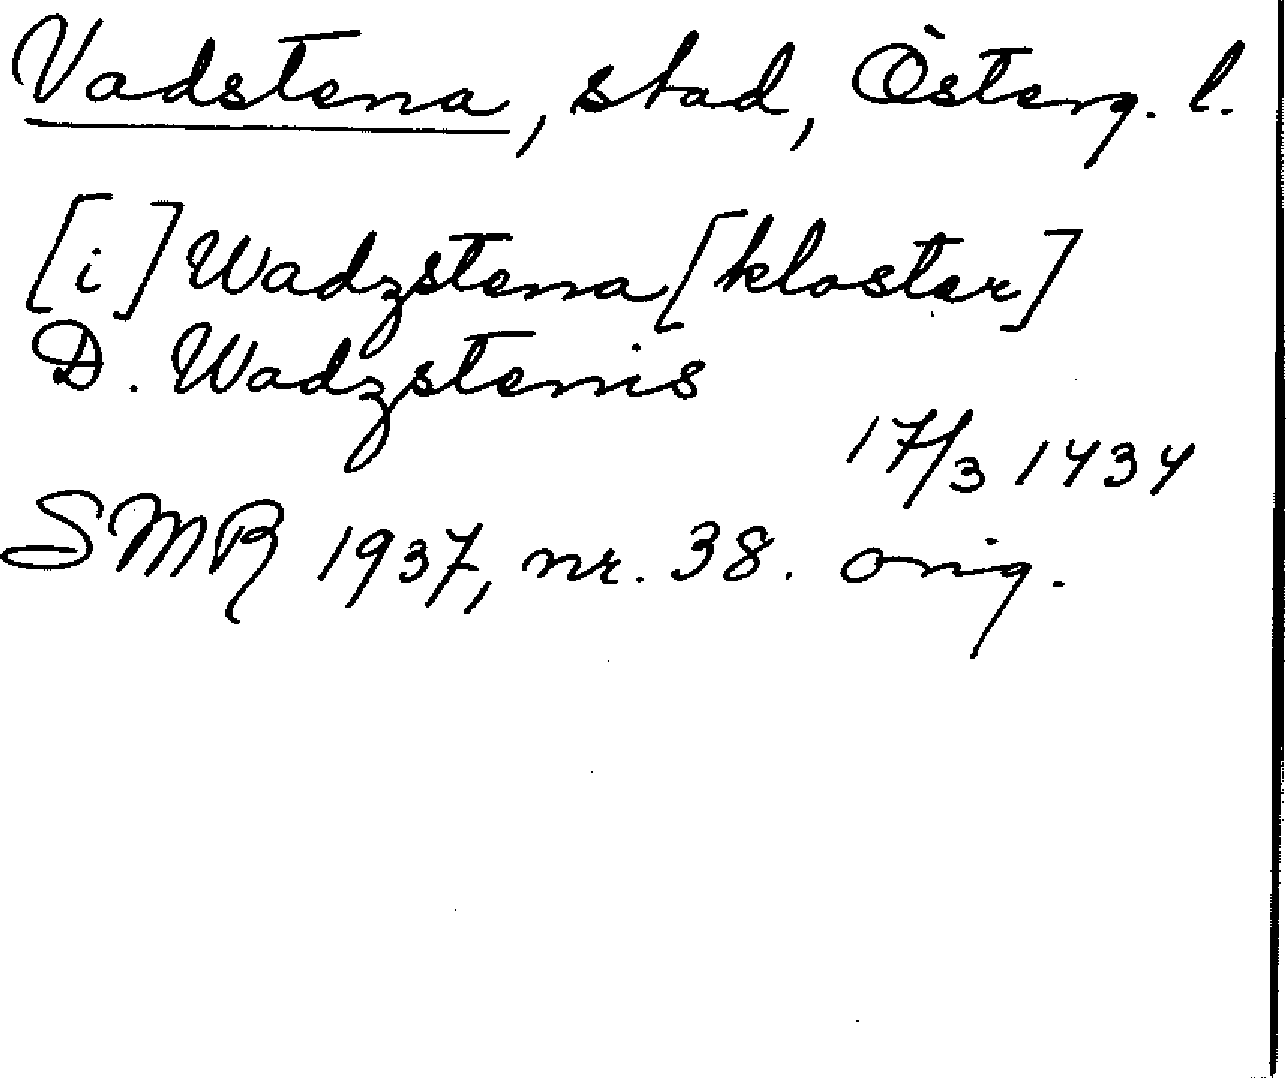 Vadstena, stad, Österg. l.
[i] Wadzstena [kloster]
D. Wadzstenis
17/3 1434
SMR 1937, nr. 38. orig.